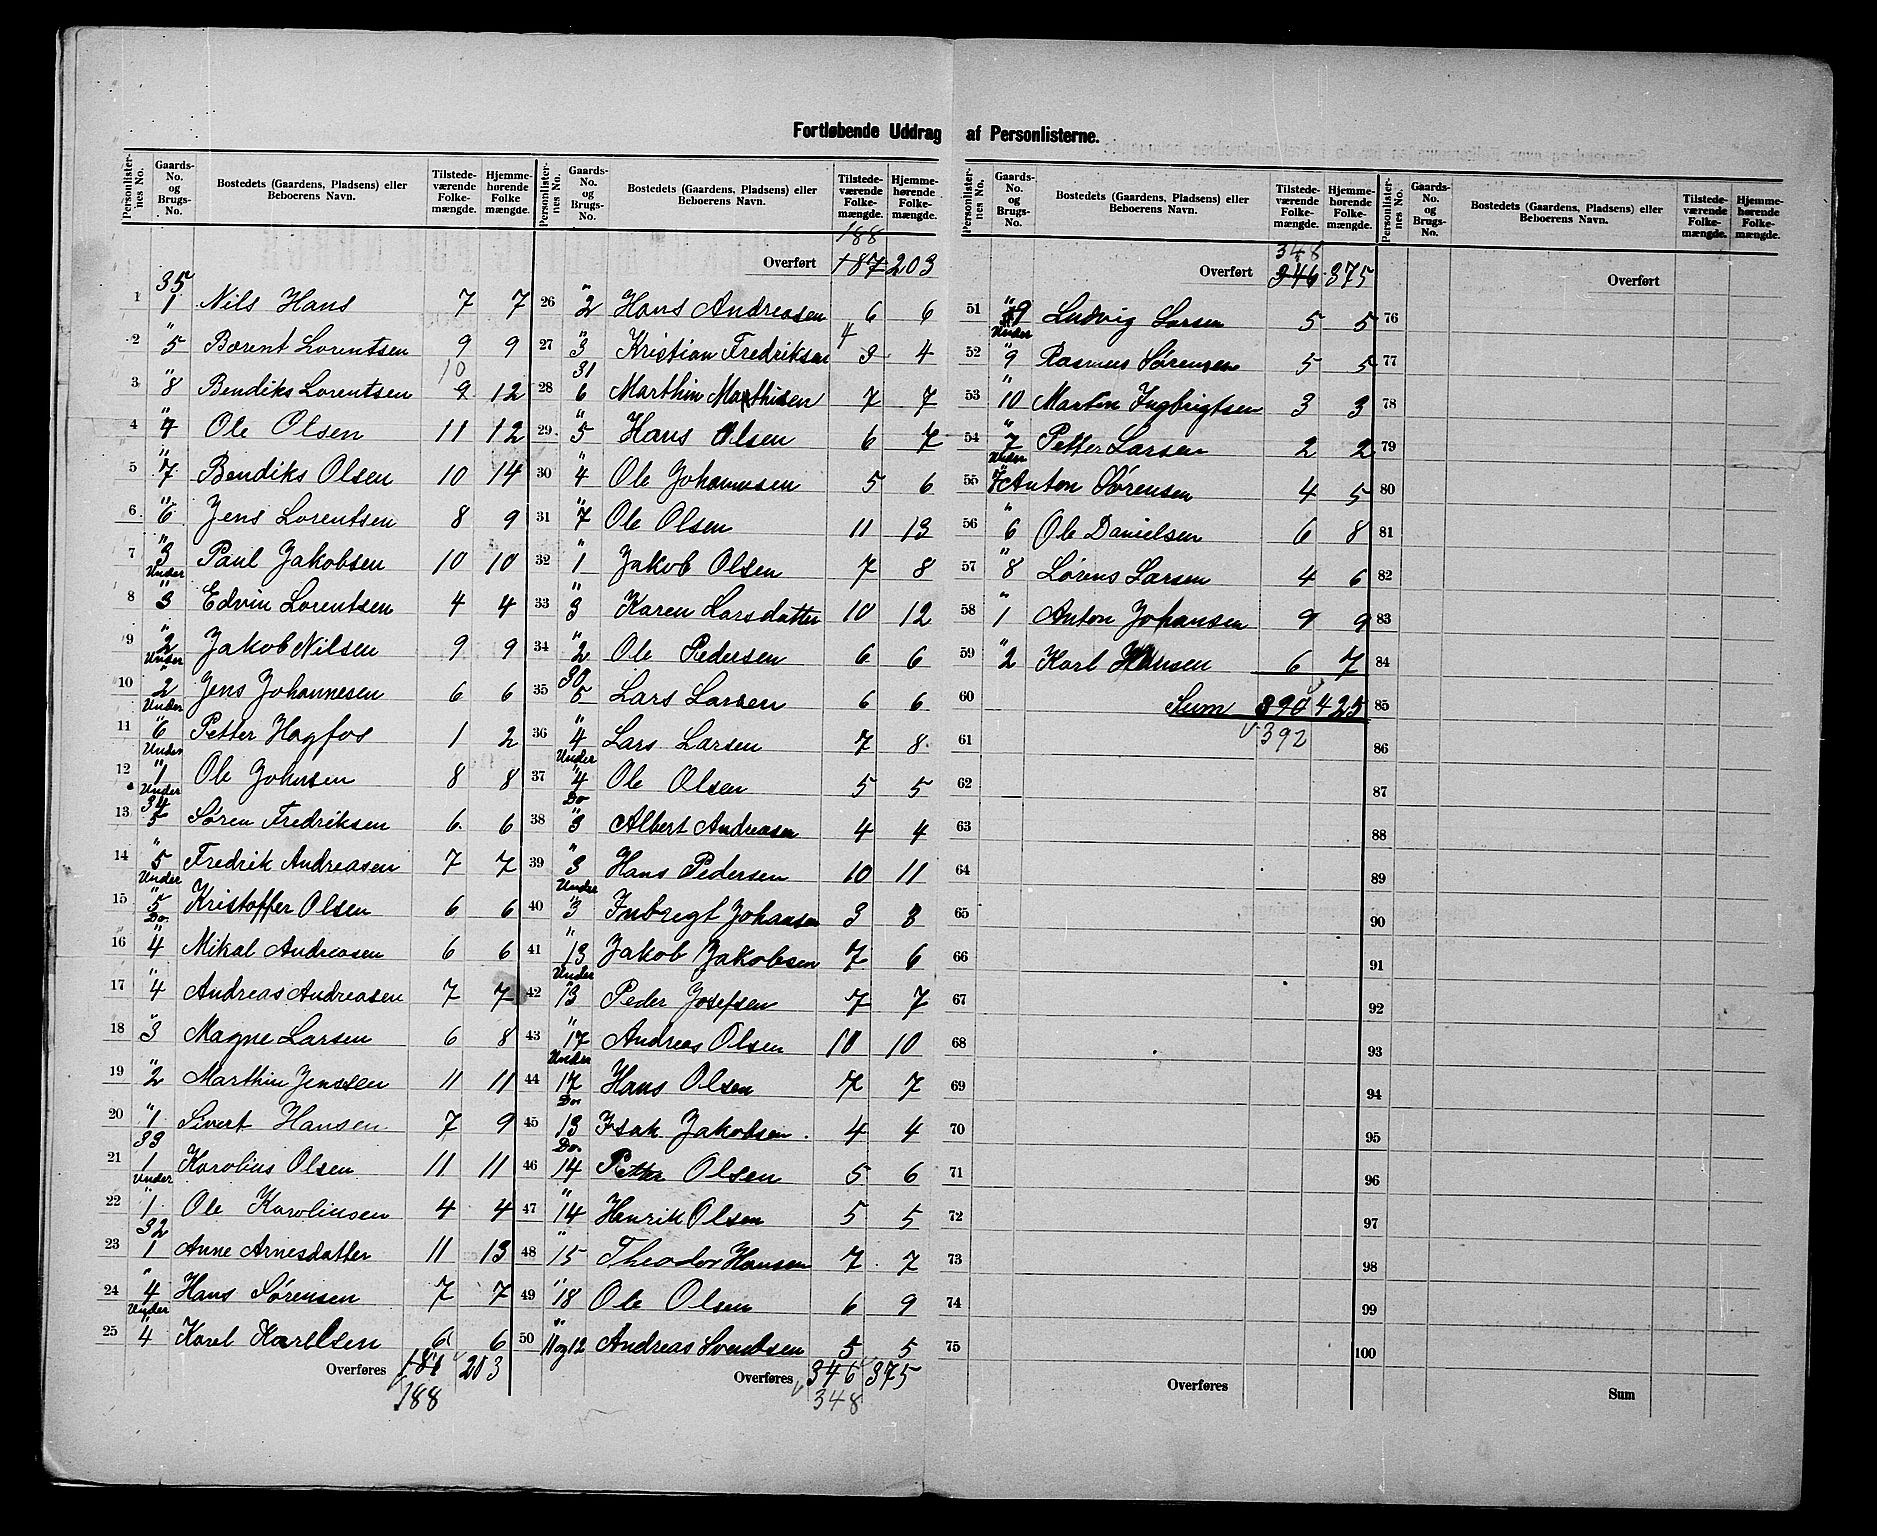 Fortløbende Uddrag af Personlisterne.
Personlister-nes No. Gaards-No. og Brugs-No. Bostedets (Gaardens, Pladsens) eller Beboerens Navn. Tilstede-værende Folke-mængde. Hjemme-hørende Folke mængde.
35
1 1 Nils Hans 7 7
2 " 5 Bærent Lorentsen 9 9
10
3 " 8 Bendiks Lorentsen 9 12
4 " 4 Ole Olsen 11 12
5 " 7 Bendiks Olsen 10 14
6 " 6 Jens Lorentsen 8 9
7 " 3 Paul Jakobsen 10 10
Under
8 " 3 Edvin Lorentsen 4 4
9 " 2 Jakob Nilsen 9 9
Under
10 " 2 Jens Johannesen 6 6
Under
11 " 6 Petter Hagfos 1 2
Under
12 " 1 Ole Johnsen 8 8
Under
34
13 5 Søren Fredriksen 6 6
14 " 5 Fredrik Andreasen 7 7
Under
15 " 5 Kristoffer Olsen 6 6
Do.
16 " 4 Mikal Andreasen 6 6
17 " 4 Andreas Andreasen 7 7
18 " 3 Magne Larsen 6 8
19 " 2 Marthin Jenssen 11 11
20 " 1 Sivert Hansen 7 9
33
21 1 Karolius Olsen 11 11
Under
22 " 1 Ole Karoliusen 4 4
32
23 1 Anne Arnesdatter 11 13
24 " 4 Hans Sørensen 7 7
Under
25 " 4 Karel Karelsen 6 6
Overføres 187 203
188
Personlister-nes No. Gaards-No. og Brugs-No. Bostedets (Gaardens, Pladsens) eller Beboerens Navn. Tilstede-værende Folke-mængde. Hjemme-hørende Folke-mængde.
188
Overført 187 203
26 " 2 Hans Andreasen 6 6
4
27 " 3 Kristian Fredriksen 3 4
31
28 6 Marthin Mathisen 7 7
29 " 5 Hans Olsen 6 7
30 " 4 Ole Johannesen 5 6
31 " 7 Ole Olsen 11 13
32 " 1 Jakob Olsen 7 8
33 " 3 Karen Larsdatter 10 12
34 " 2 Ole Pedersen 6 6
30
35 5 Lars Larsen 6 6
36 " 4 Lars Larsen 7 8
Under
37 " 4 Ole Olsen 5 5
Do
38 " 3 Albert Andreasen 4 4
39 " 3 Hans Pedersen 10 11
Under
40 " 3 Inbregt Johansen 3 3
41 " 13 Jakob Jakobsen 7 6
Under
42 " 13 Peder Josefsen 7 7
43 " 17 Andreas Olsen 10 10
Under
44 17 Hans Olsen 7 7
Do.
45 13 Isak Jakobsen 4 4
Do.
46 14 Petter Olsen 5 6
47 " 14 Henrik Olsen 5 5
48 " 15 Theodor Hansen 7 7
49 " 18 Ole Olsen 6 9
50 " 11 og 12 Andreas Svendsen 5 5
Overføres 346 375
348
Personlister-nes No. Gaards-No. og Brugs-No. Bostedets (Gaardens, Pladsens) eller Beboerens Navn. Tilstede-værende Folke-mængde. Hjemme-hørende Folke-mængde.
348
Overført 346 375
51 " 9 Ludvig Larsen 5 5
Under
52 " 9 Rasmus Sørensen 5 5
53 " 10 Martin Ingbrigtsen 3 3
54 " 7 Petter Larsen 2 2
Under
55 " 7 Anton Sørensen 4 5
56 " 6 Ole Danielsen 6 8
57 " 8 Lørens Larsen 4 6
58 " 1 Anton Johansen 9 9
59 " 2 Karl Hansen 6 7
60 Sum 390 425
61 392
62
63
64
65
66
67
68
69
70
71
72
73
74
75
Overføres
Personlister-nes No. Gaards-No. og Brugs-No. Bostedets (Gaardens, Pladsens) eller Beboerens Navn. Tilstede-værende Folke-mængde. Hjemme-hørende Folke-mængde.
Overført
76
77
78
79
80
81
82
83
84
85
86
87
88
89
90
91
92
93
94
95
96
97
98
99
100
Sum